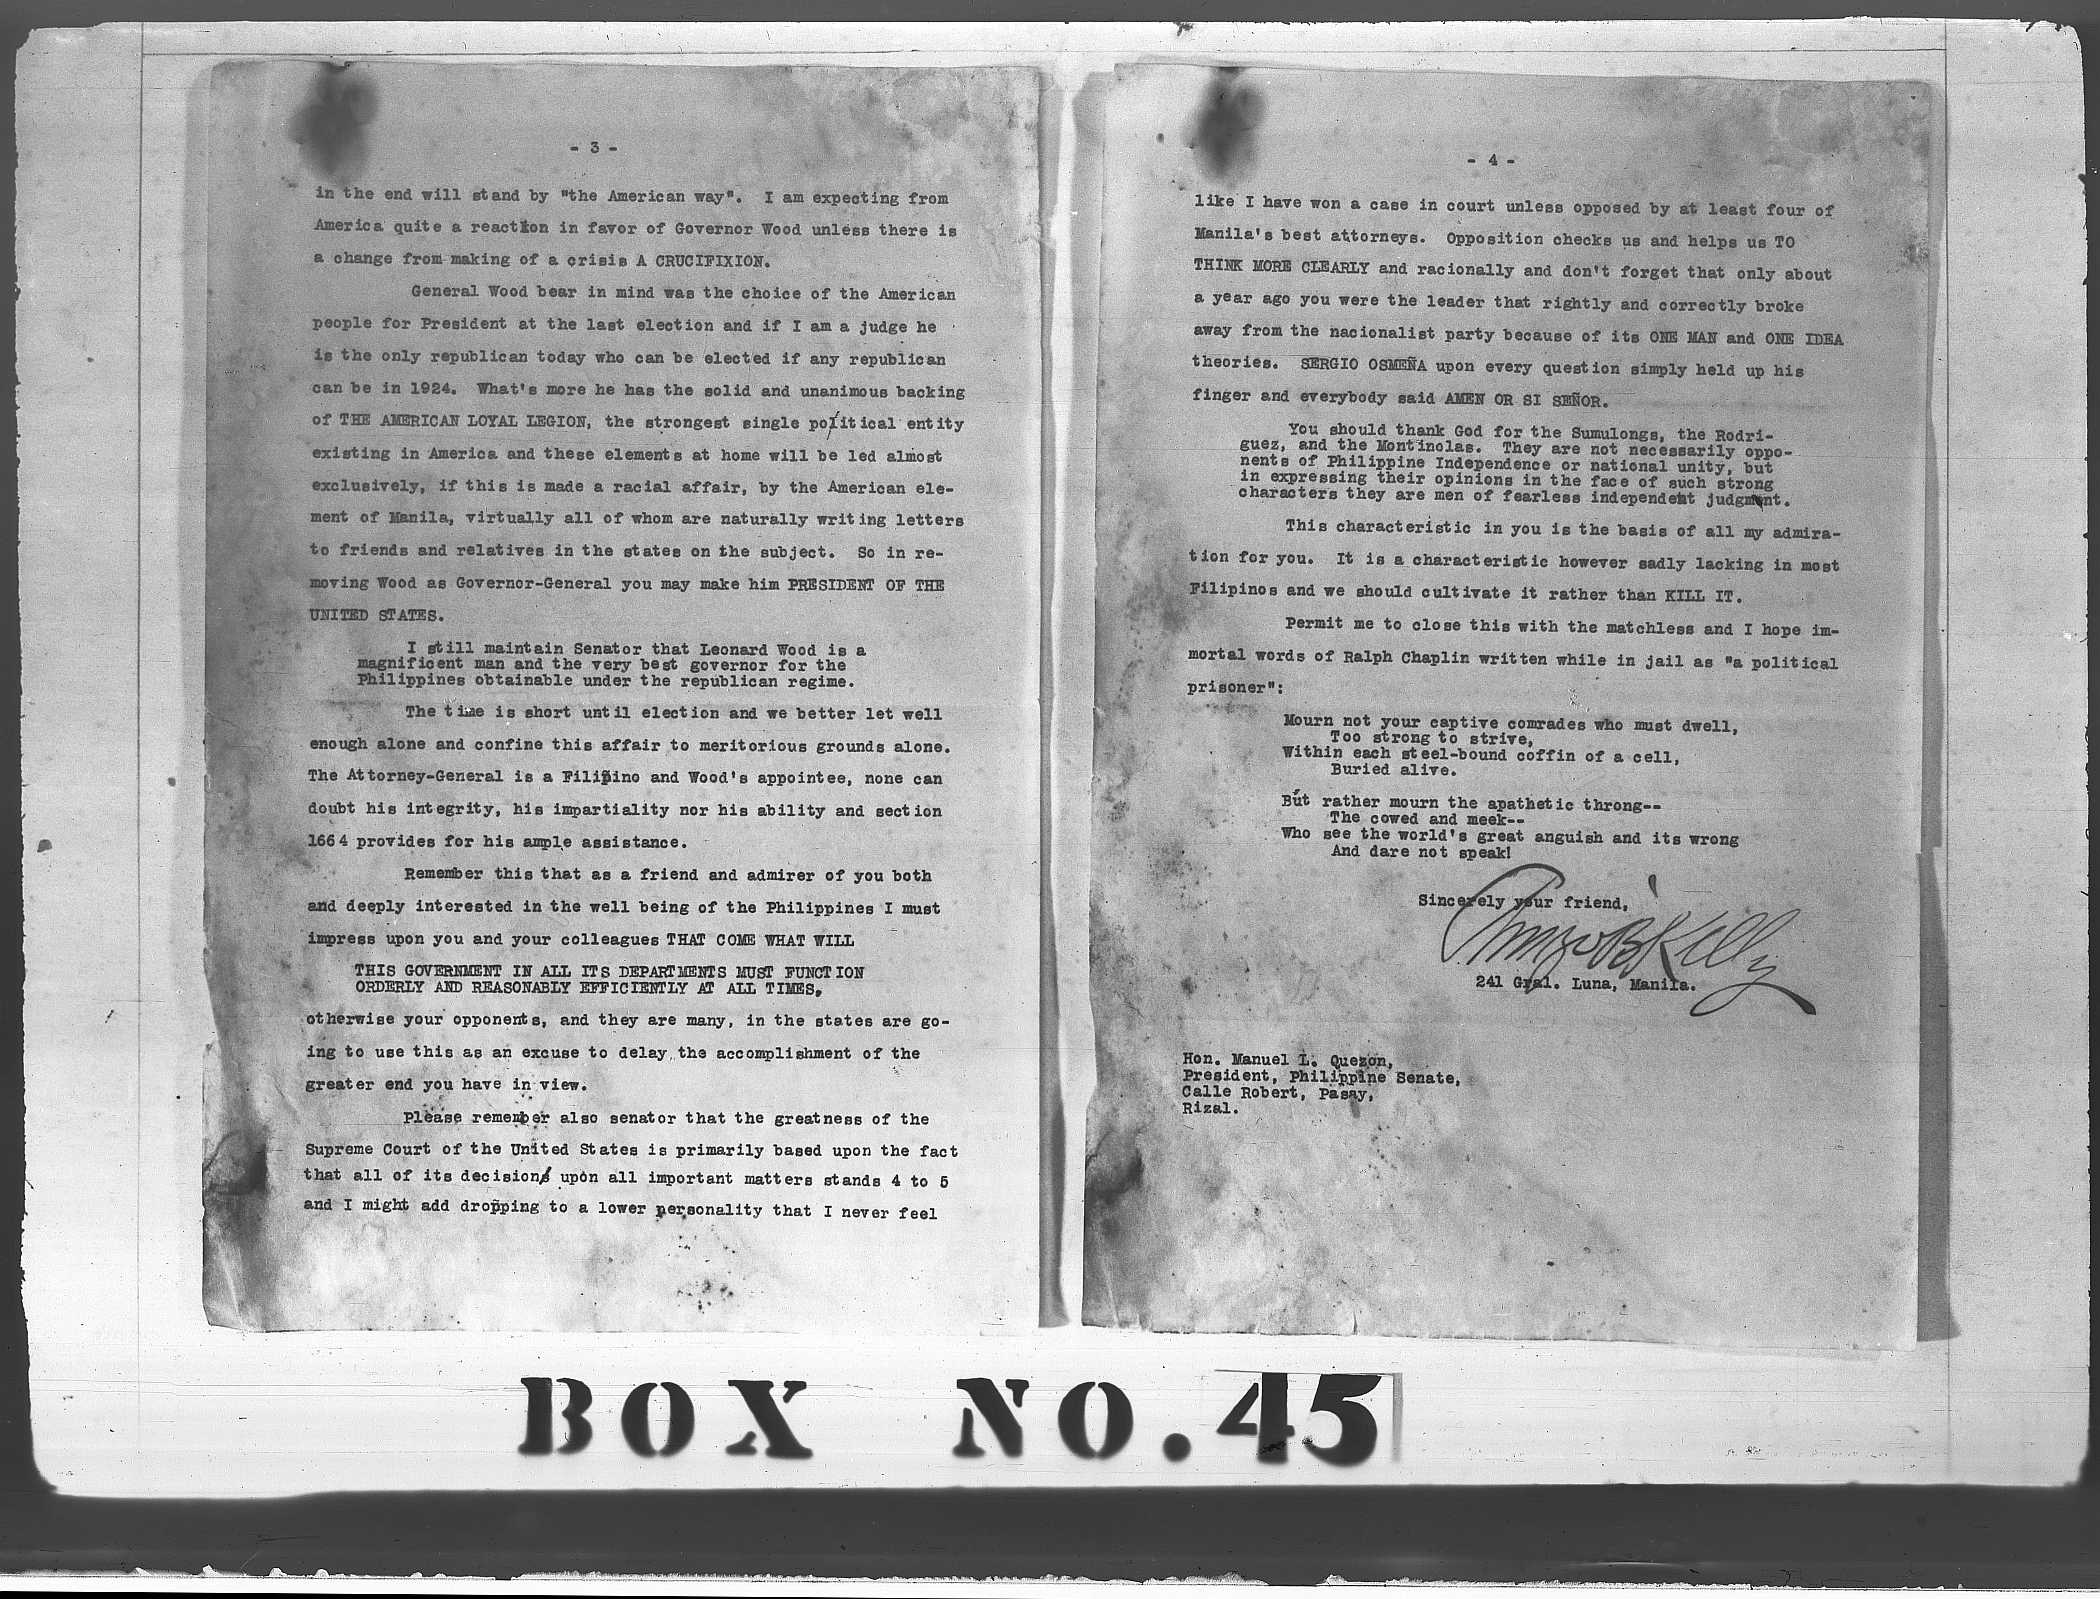 - 3 -
in the end will stand by "the American way".  I am expecting from
America quite a reaction in favor of Governor Wood unless there is
a change from making of a crisis A CRUCIFIXION.
General Wood bear in mind was the choice of the American
people for President at the last election and if I am a judge he
is the only republican today who can be elected if any republican
can be in 1924.  What's more he has the solid and unanimous backing
of THE AMERICAN LOYAL LEGION, the strongest single political entity
existing in America and these elements at home will be led almost
exclusively, if this is made a racial affair, by the American ele-
ment of Manila, virtually all of whom are naturally writing letters
to friends and relatives in the states on the subject.  So in re-
moving Wood as Governor-General you may make him PRESIDENT OF THE
UNITED STATES.
I still maintain Senator that Leonard Wood is a
magnificent man and the very best governor for the
Philippines obtainable under the republican regime.
The time is short until election and we better let well
enough alone and confine this affair to meritorious grounds alone.
The Attorney-General is a Filipino and Wood's appointee, none can
doubt his integrity, his impartiality nor his ability and section
1664 provides for his ample assistance.
Remember this that as a friend and admirer of you both
and deeply interested in the well being of the Philippines I must
impress upon you and your colleagues THAT COME WHAT WILL
THIS GOVERNMENT IN ALL ITS DEPARTMENTS MUST FUNCTION
ORDERLY AND REASONABLY EFFICIENTLY AT ALL TIMES,
otherwise your opponents, and they are many, in the states are go-
ing to use this as an excuse to delay the accomplishment of the
greater end you have in view.
Please remember also senator that the greatness of the
Supreme Court of the United States is primarily based upon the fact
that all of its decisions upon all important matters stands 4 to 5
and I might add dropping to a lower personality that I never feel
- 4 -
like I have won a case in court unless opposed by at least four of
Manila's best attorneys.  Opposition checks us and helps us TO
THINK MORE CLEARLY and racionally and don't forget that only about
a year ago you were the leader that rightly and correctly broke
away from the nacionalist party because of its ONE MAN and ONE IDEA
theories.  SERGIO OSMEÑA upon every question simply held up his
finger and everybody said AMEN OR SI SEÑOR.
You should thank God for the Sumulongs, the Rodri-
guez, and the Montinolas.  They are not necessarily oppo-
nents of Philippine Independence or national unity, but
in expressing their opinions in the face of such strong
characters they are men of fearless independent judgment.
This characteristic in you is the basis of all my admira-
tion for you.  It is a characteristic however sadly lacking in most
Filipinos and we should cultivate it rather than KILL IT.
Permit me to close this with the matchless and I hope im-
mortal words of Ralph Chaplin written while in jail as "a political
prisoner":
Mourn not your captive comrades who must dwell,
Too strong to strive,
Within each steel-bound coffin of a cell,
Buried alive.
But rather mourn the apathetic throng--
The cowed and meek--
Who see the world's great anguish and its wrong
And dare not speak!
Sincerely your friend,
241 Gral. Luna, Manila.
Hon. Manuel L. Quezon,
President, Philippine Senate,
Calle Robert, Pasay,
Rizal.
BOX NO. 45